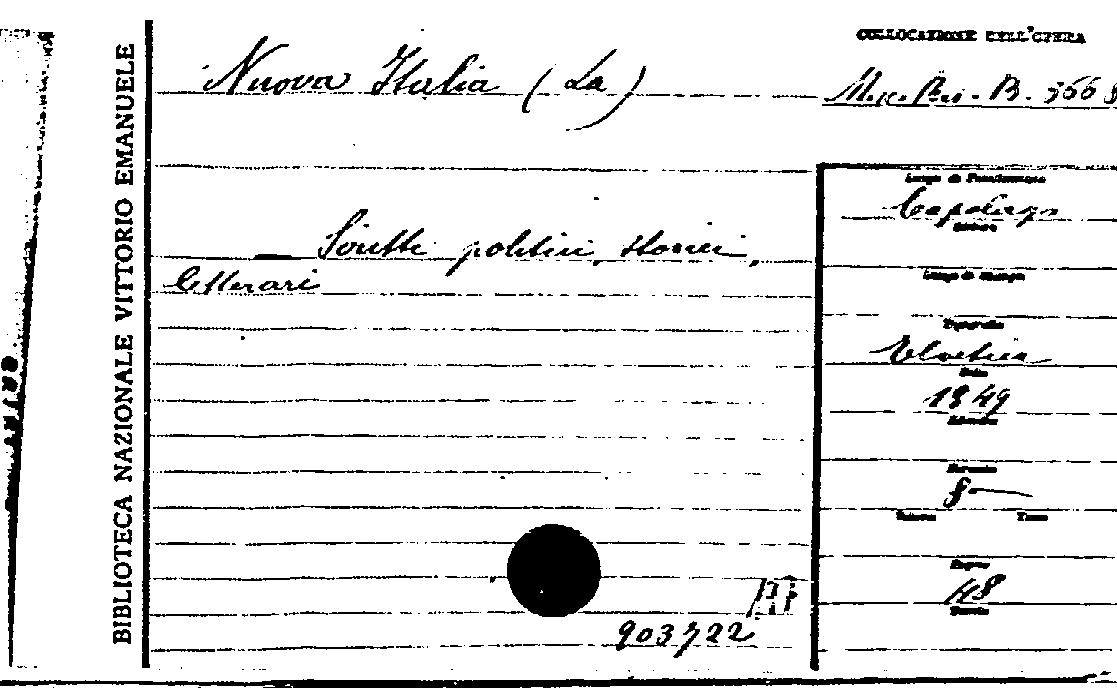 BIBLIOTECA NAZIONALE VITTORIO EMANUELE
COLLOCAZIONE DELL'OPERA
Nuova Italia (La)
Misc. Ris. B. 366 8
Luogo di Pubblicazione
Capolago
— Scritti politici, storici,
letterari
Luogo di Stampa
Tipografia
Elvetica
Data
1849
Formato
8-
Volume Tomo
Pagine
48
903722